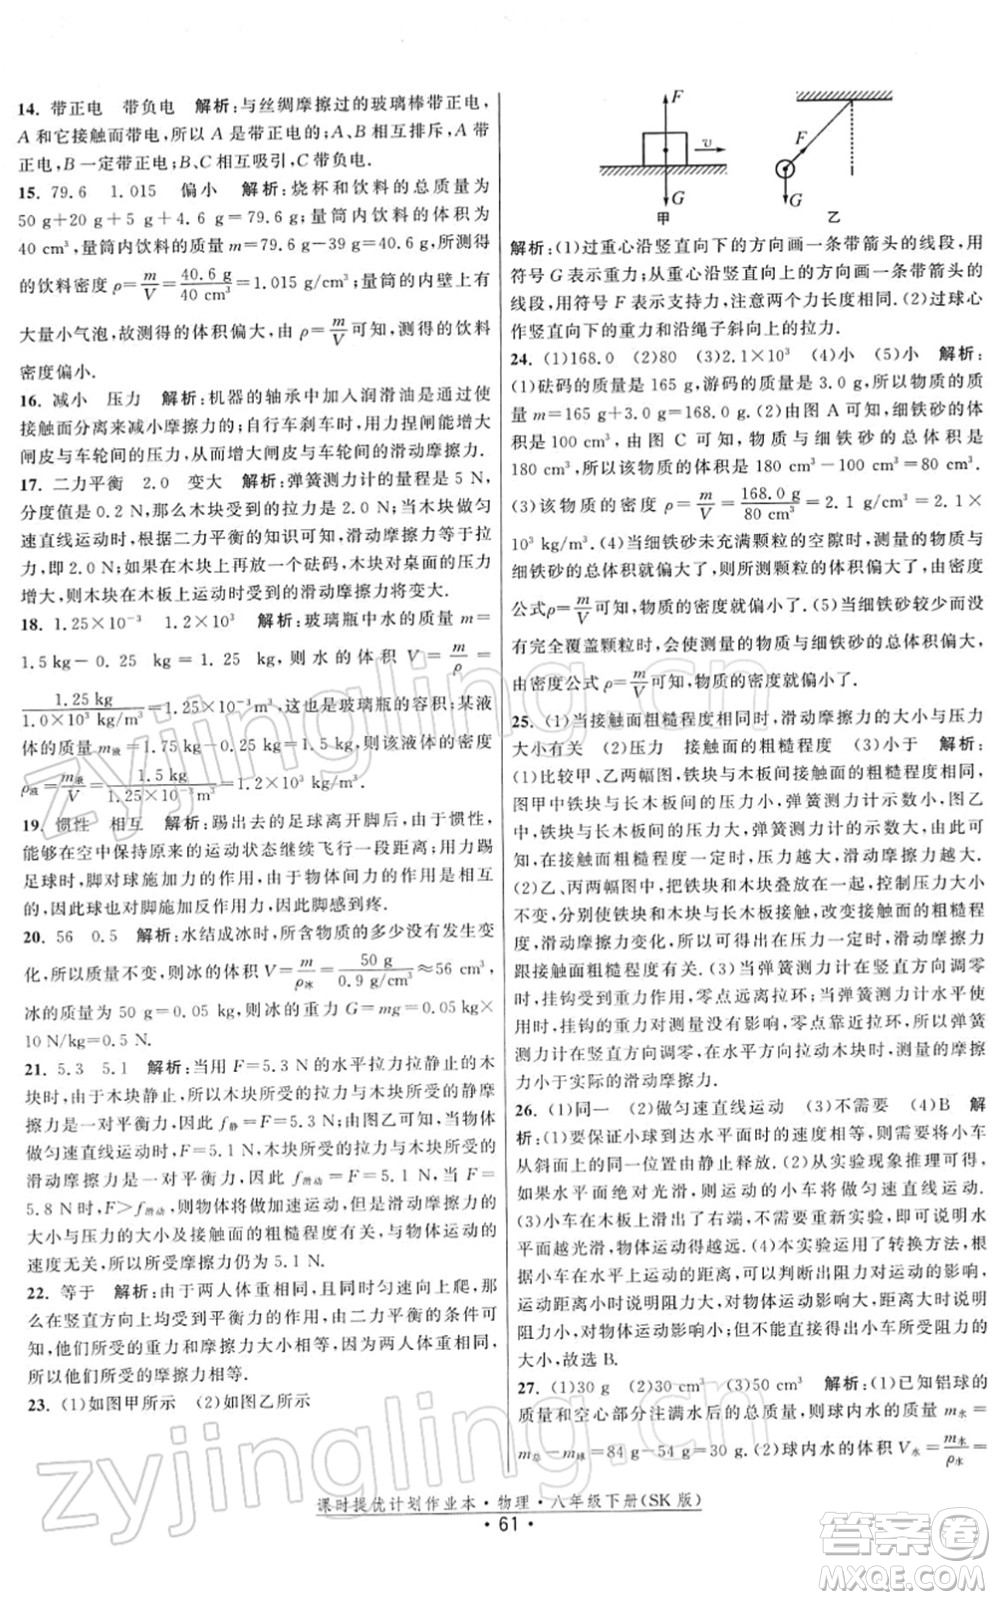 14. 带正电　带负电　解析:与丝绸摩擦过的玻璃棒带正电,
A 和它接触而带电,所以 A 是带正电的;A、B 相互排斥,A 带
正电,B 一定带正电;B、C 相互吸引,C 带负电.
15. 79.6　1.015　偏小　解析:烧杯和饮料的总质量为
50 g+20 g+5 g+4.6 g=79.6 g;量筒内饮料的体积为
40 cm³,量筒内饮料的质量 m=79.6 g-39 g=40.6 g,测得
的饮料密度 ρ=m/V=40.6 g/40 cm³=1.015 g/cm³;饮料中有
大量小气泡,故测得的体积偏大,由 ρ=m/V可知,测得的饮料
密度偏小.
16. 减小　压力　解析:机器的轴承中加入润滑油是通过使
接触面分离来减小摩擦力的;自行车刹车时,用力捏闸增大
闸皮与车轮间的压力,从而增大闸皮与车轮间的滑动摩擦力.
17. 二力平衡　2.0　变大　解析:弹簧测力计的量程是 5 N,
分度值是 0.2 N,那么木块受到的拉力是 2.0 N;当木块做匀
速直线运动时,根据二力平衡的知识可知,滑动摩擦力等于拉
力,即 2.0 N;如果在木块上再放一个砝码,木块对桌面的压力
增大,则木块在木板上运动时受到的滑动摩擦力变大.
18. 1.25×10⁻³　1.2×10³　解析:玻璃瓶中水的质量 m=
1.5 kg-0.25 kg=1.25 kg:则水的体积 V=m/ρ=
1.25 kg/1.0×10³ kg/m³=1.25×10⁻³m³,这也是玻璃瓶的容积;某液
体的质量 m液=1.75 kg-0.25 kg=1.5 kg,则该液体的密度
ρ液=m液/V=1.5 kg/1.25×10⁻³m³=1.2×10³ kg/m³.
19. 惯性　相互　解析:踢出去的足球离开脚后,由于惯性,
能够在空中保持原来的运动状态继续飞行一段距离;用力踢
足球时,脚对球施加力的作用,由于物体间力的作用是相互
的,因此球也对脚施加反作用力,因此脚感到疼.
20. 56　0.5　解析:水结成冰时,所含物质的多少没有发生变
化,所以质量不变,则冰的体积 V=m/ρ冰=50 g/0.9 g/cm³≈56 cm³,
冰的质量为 50 g=0.05 kg,则冰的重力 G=mg=0.05 kg×
10 N/kg=0.5 N.
21. 5.3　5.1　解析:当用 F=5.3 N的水平拉力拉静止的木
块时,由于木块静止,所以木块所受的拉力与木块所受的静摩
擦力是一对平衡力,因此 f静=F=5.3 N;由图乙可知,当物体
做匀速直线运动时,F=5.1 N,木块所受的拉力与木块所受的
滑动摩擦力是一对平衡力,因此 f滑动=F=5.1 N;当 F=
5.8 N时,F>f滑动,则物体将做加速运动,但是滑动摩擦力
的大小与压力的大小及接触面的粗糙程度有关,与物体运动的
速度无关,所以所受摩擦力仍为 5.1 N.
22. 等于　解析:由于两人体重相同,且同时匀速向上爬,那
么在竖直方向上均受到平衡力的作用,由二力平衡的条件可
知,他们的重力和摩擦力大小相等.因此两人体重相同,
所以他们所受的摩擦力相等.
23. (1)如图甲所示　(2)如图乙所示
F v G 甲
F G 乙
解析:(1)过重心沿竖直向下的方向画一条带箭头的线段,用
符号 G 表示重力;从重心沿竖直向上的方向画一条带箭头的
线段,用符号 F 表示支持力,注意两个力长度相同.(2)过球心
作竖直向下的重力和沿绳子斜向上的拉力.
24. (1)168.0　(2)80　(3)2.1×10³　(4)小　(5)小　解析:
(1)砝码的质量是 165 g,游码的质量是 3 g,所以所称物质的
质量 m=165 g+3 g=168.0 g.(2)由图 A 可知,细铁砂的体
积是 100 cm³,由图 C 可知,物质与细铁砂的总体积是
180 cm³,所以该物质的体积是 180 cm³-100 cm³=80 cm³.
(3)该物质的密度 ρ=m/V=168.0 g/80 cm³=2.1 g/cm³=2.1×
10³ kg/m³.(4)当细铁砂未充满颗粒的空隙时,测量的物质与
细铁砂的总体积就偏大了,则测量的物质的体积偏大,由密度
公式ρ=m/V可知,物质的密度就偏小了.(5)当细铁砂较少而没
有完全覆盖颗粒时,会使测量的物质与细铁砂的总体积偏大,
由密度公式 ρ=m/V可知,物质的密度就偏小了.
25. (1)当接触面粗糙程度相同时,滑动摩擦力的大小与压力
大小有关　(2)压力　接触面的粗糙程度　(3)小于　解析:
(1)比较甲、乙两幅图,铁块与木板间接触面的粗糙程度相同,
图甲中铁块与长木板间的压力小,弹簧测力计示数小,图乙
中,铁块与长木板间的压力大,弹簧测力计的示数大,由此可
知,在接触面粗糙程度一定时,压力越大,滑动摩擦力越大.
(2)乙、丙两幅图中,把铁块和木块叠放在一起,控制压力大小
不变,分别使铁块和木块与长木板接触,改变接触面的粗糙程
度,滑动摩擦力变化,所以可得出在压力一定时,滑动摩擦力
跟接触面粗糙程度有关.(3)当弹簧测力计在竖直方向调零
时,挂钩受到重力作用,零点远离拉环;当弹簧测力计水平使
用时,挂钩的重力对测量没有影响,零点靠近拉环,所以弹簧
测力计在竖直方向调零,在水平方向拉动木块时,测量的摩擦
力小于实际的滑动摩擦力.
26. (1)同一　(2)做匀速直线运动　(3)不需要　(4)B　解
析:(1)要保证小球到达水平面时的速度相等,必须将小车
从斜面上的同一位置由静止释放.(2)从实验现象推理可得,
如果水平面绝对光滑,则运动的小车将做匀速直线运动.
(3)小车在木板上滑出了右端,不需要重新实验,即可得出水
平面越光滑,小车运动得越远.(4)本实验运用了转换方法,根
据小车在水平面运动的距离,可以判断出阻力对物体运动的影响,
运动距离小说明阻力大,对物体运动的阻碍大;运动距离大说明
阻力小,对物体运动的阻碍小,由此来判断出小车所受阻力
的大小,故选 B.
27. (1)30 g　(2)30 cm³　(3)50 cm³　解析:(1)已知铝球的
质量和空心部分注满水后的总质量,则球内水的质量 m水=
m总-m球=84 g-54 g=30 g.(2)球内水的体积 V水=m水/ρ水=
课时提优计划作业本·物理·八年级下册(SK 版)
· 61 ·
zyjingling.cn
zyjingling.cn
答案圈
MXQE.COM